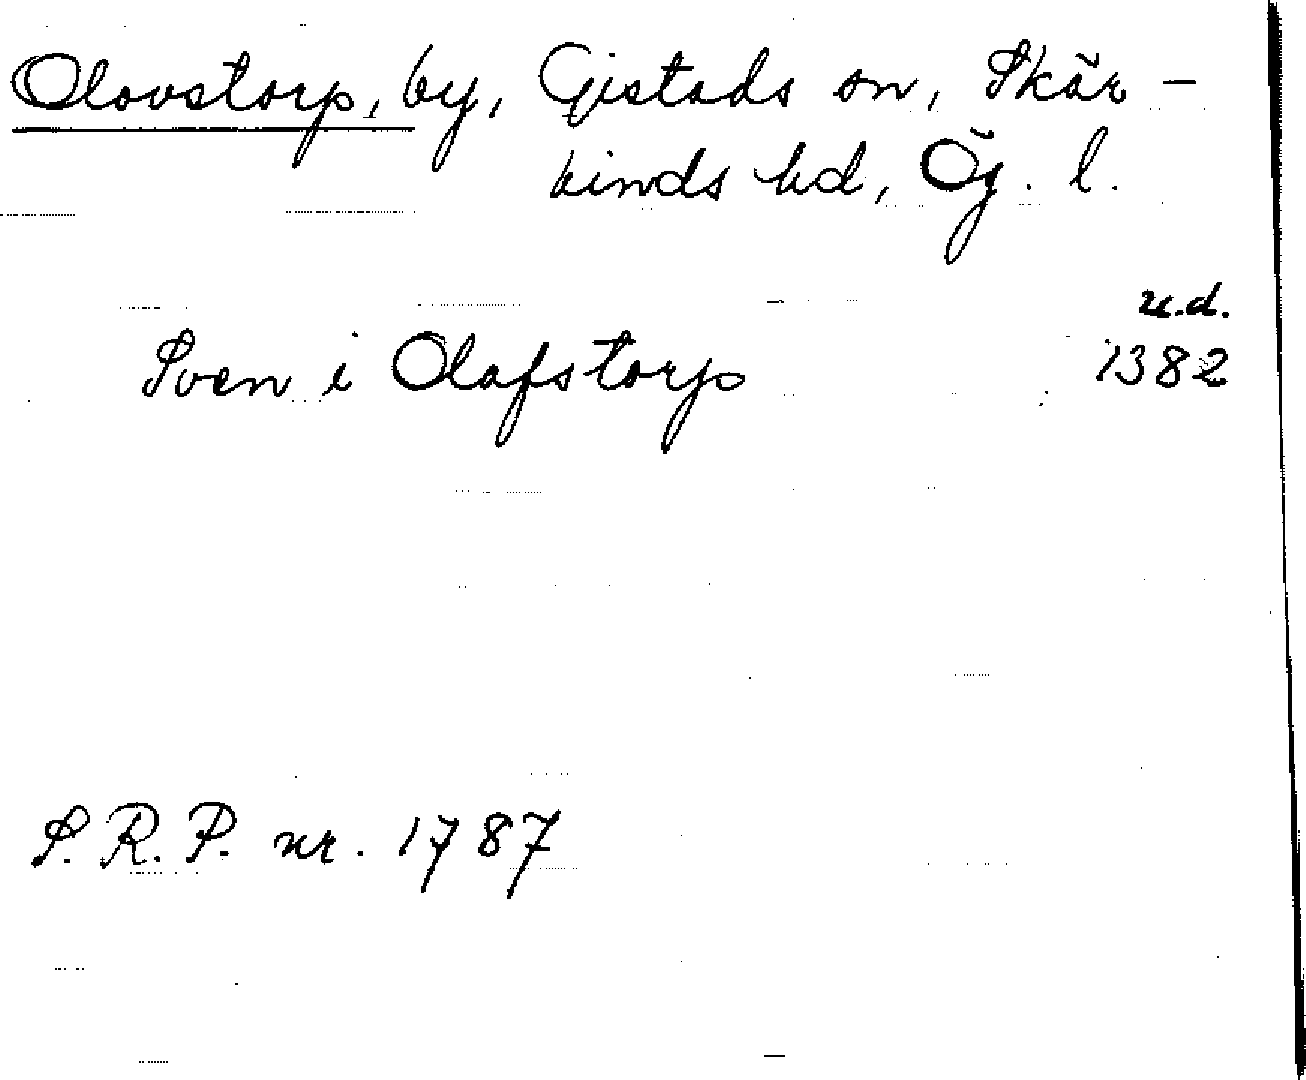 Olovstorp, by, Gistads sn, Skär-
kinds hd, Ög. l.
u.d.
Sven i Olafstorp 1382
S.R.P. nr. 1787